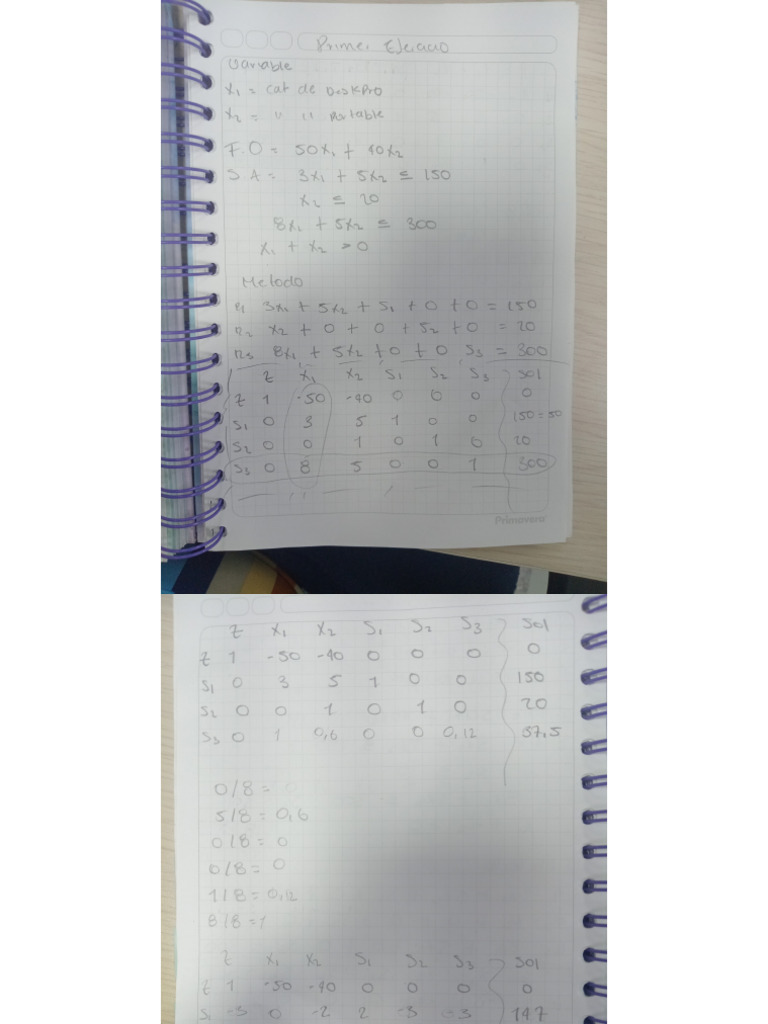 Primer Ejercicio
Variable
X₁ = cat de DeskPro
X₂ = " " Portable
F.O = 50X₁ + 40X₂
S.A = 3X₁ + 5X₂ ≤ 150
X₂ ≤ 20
8X₁ + 5X₂ ≤ 300
X₁ + X₂ > 0
Metodo
R1 3X₁ + 5X₂ + S₁ + 0 + 0 = 150
R2 X₂ + 0 + 0 + S₂ + 0 = 20
R3 8X₁ + 5X₂ + 0 + 0 S₃ = 300
Z X₁ X₂ S₁ S₂ S₃ Sol
Z 1 -50 -40 0 0 0 0
S₁ 0 3 5 1 0 0 150 = 50
S₂ 0 0 1 0 1 0 20
S₃ 0 8 5 0 0 1 300
Primavera
Z X₁ X₂ S₁ S₂ S₃ Sol
Z 1 -50 -40 0 0 0 0
S₁ 0 3 5 1 0 0 150
S₂ 0 0 1 0 1 0 20
S₃ 0 1 0,6 0 0 0,12 37.5
0/8 =
5/8 = 0,6
0/8 = 0
0/8 = 0
1/8 = 0,12
8/8 = 1
Z X₁ X₂ S₁ S₂ S₃ Sol
Z 1 -50 -40 0 0 0 0
S₁ -3 0 -2 2 -3 -3 147